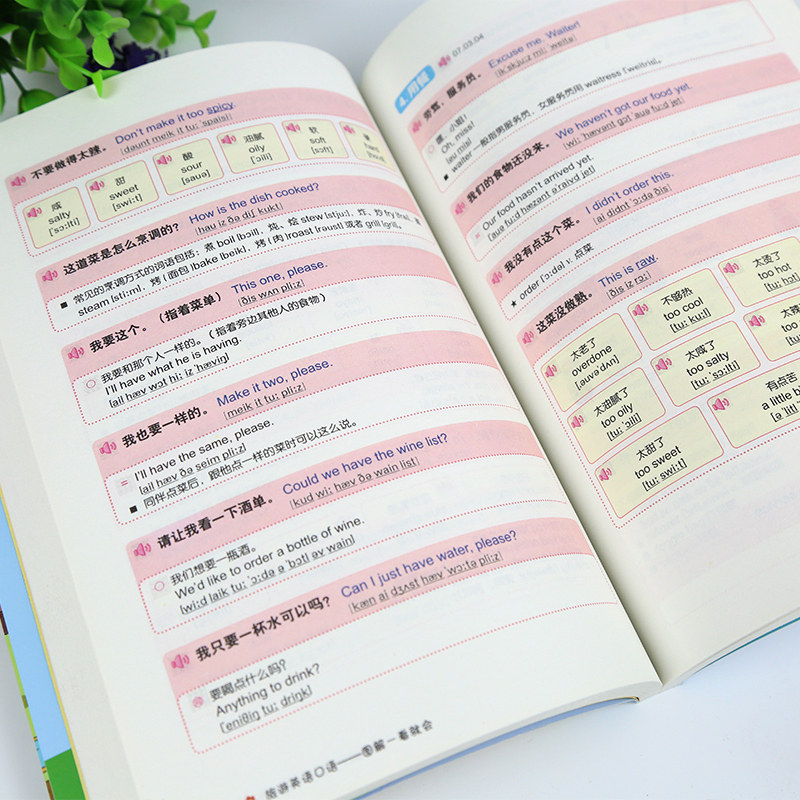 不要做得太辣。 Don't make it too spicy.
[dəunt meik it tu: ˈspaisi]
咸
salty
[ˈsɔ:lti]
甜
sweet
[swi:t]
酸
sour
[sauə]
油腻
oily
[ˈɔili]
软
soft
[sɔft]
这道菜是怎么烹调的? How is the dish cooked?
[hau iz ðə diʃ kukt]
■ 常见的烹调方式的词语包括:煮 boil [bɔil、炖、烩 stew [stju:]、炸、炒 fry [frai]、蒸
steam [sti:m]、烤(面包)bake [beik]、烤(肉)roast [rəust] 或者 grill [gril]。
我要这个。(指着菜单) This one, please.
[ðis wʌn pli:z]
我要和那个人一样的。(指着旁边其他人的食物)
I'll have what he is having.
[ail hæv wɔt hi: iz ˈhæviŋ]
我也要一样的。 Make it two, please.
[meik it tu: pli:z]
= I'll have the same, please.
[ail hæv ðə seim pli:z]
■ 同伴点菜后,跟他点一样的菜时可以这么说。
请让我看一下酒单。 Could we have the wine list?
[kud wi: hæv ðə wain list]
我们想要一瓶酒。
We'd like to order a bottle of wine.
[wi:d laik tu: ˈɔ:də ə ˈbɔtl əv wain]
我只要一杯水可以吗? Can I just have water, please?
[kæn ai dʒʌst hæv ˈwɔ:tə pli:z]
要喝点什么吗?
Anything to drink?
[ˈeniθiŋ tu: driŋk]
旅游英语口语——图解一看就会
4.用餐 07.03.04
劳驾,服务员。 Excuse me. Waiter!
[ikˈskju:z mi: ˈweitə]
嘿,小姐!
Oh, miss!
[əu mis]
■ waiter 一般指男服务员,女服务员用 waitress [ˈweitris]。
我们的食物还没来。 We haven't got our food yet.
[wi: ˈhævənt gɔt ˈauə fu:d jet]
= Our food hasn't arrived yet.
[ˈauə fu:d ˈhæzənt əˈraivd jet]
我没有点这个菜。 I didn't order this.
[ai didnt ˈɔ:də ðis]
★ order [ˈɔ:də] v. 点菜
这菜没做熟。 This is raw.
[ðis iz rɔ:]
太老了
overdone
[ˌəuvəˈdʌn]
不够热
too cool
[tu: ku:l]
太烫了
too hot
[tu: hɔt]
太油腻了
too oily
[tu: ˈɔili]
太咸了
too salty
[tu: ˈsɔ:lti]
太辣
too
[tu:
太甜了
too sweet
[tu: swi:t]
有点苦
a little b
[ə ˈlitl